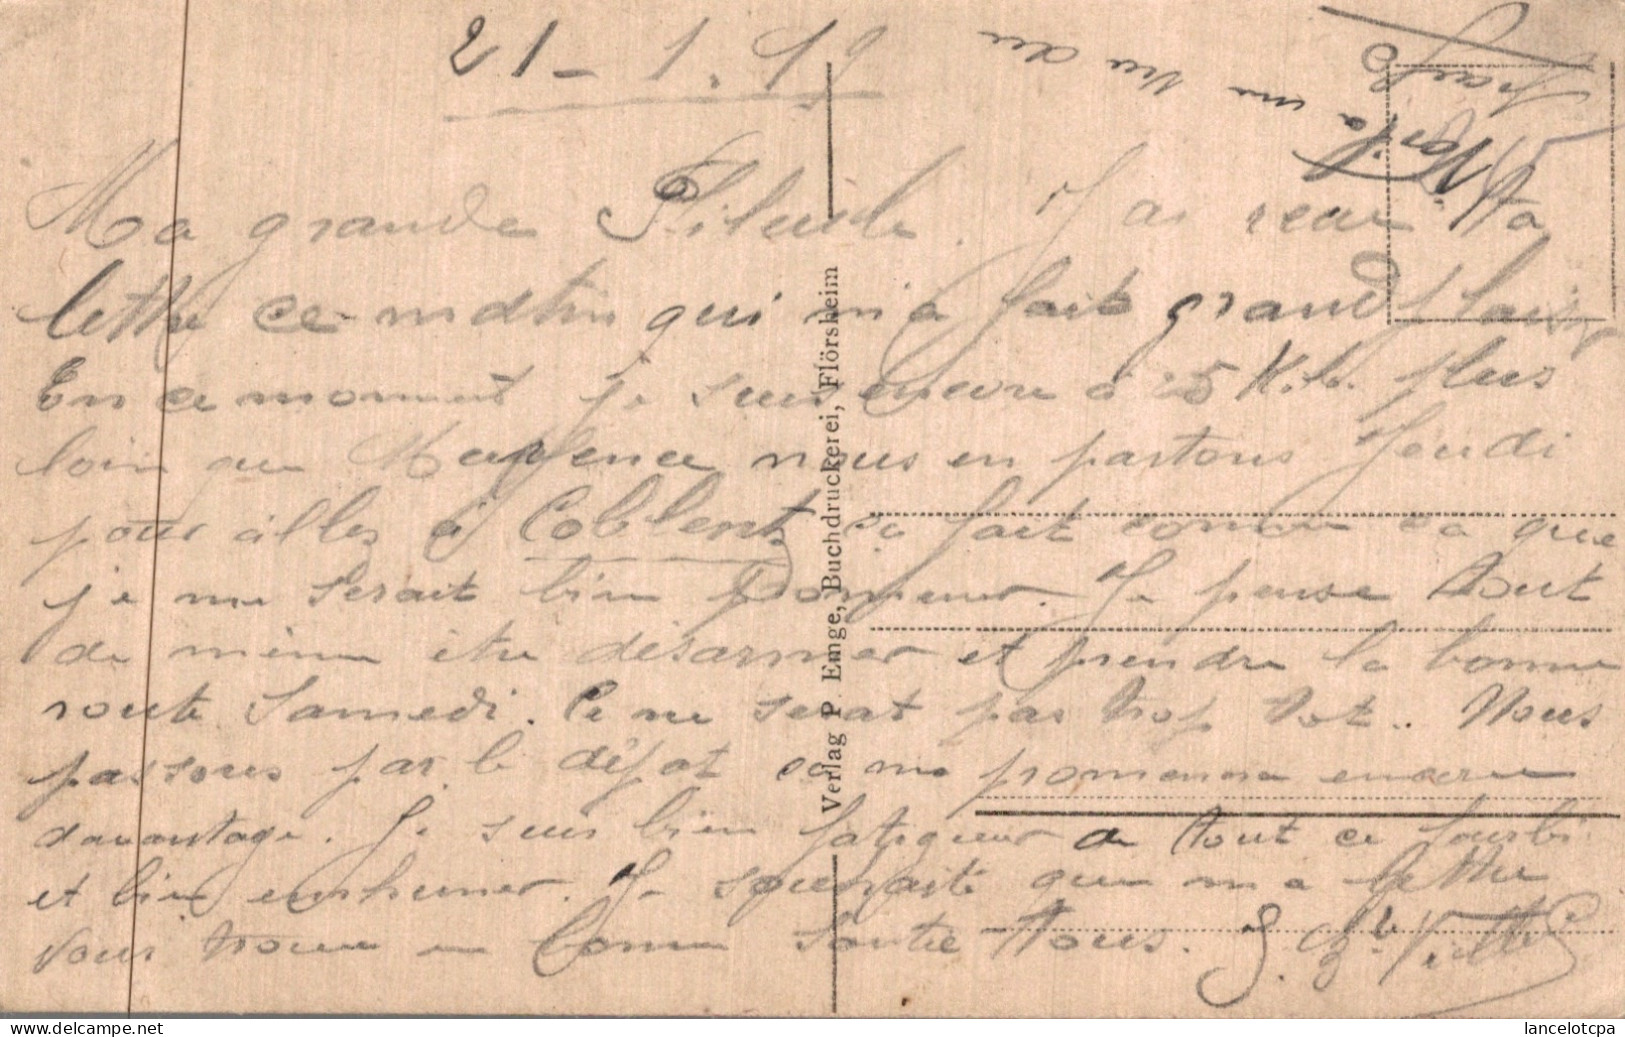 21-1.19
Voila une vue du
Ma grande Fileule. J'ai recue ta
lettre ce matin qui m'a fait grand plaisir
En ce moment je suis encore a 25 K.m. plus
loin que Mayence nous en partons Jeudi
pour alles à Coblentz ca fait comme ca que
je me serait bien promener. Je pense tout
de même être désarmer et prendre la bonne
route Samedi. Ce ne serat pas trop tot.. Nous
passons par le dépot ca me promenera encore
davantage. Je suis bien fatiguer de tout ce fourbi
et bien enrhumer. Je souhaite que ma lettre
vous trouve en bonne santé tous.
Verlag P. Emge, Buchdruckerei, Flörsheim
lancelotcpa